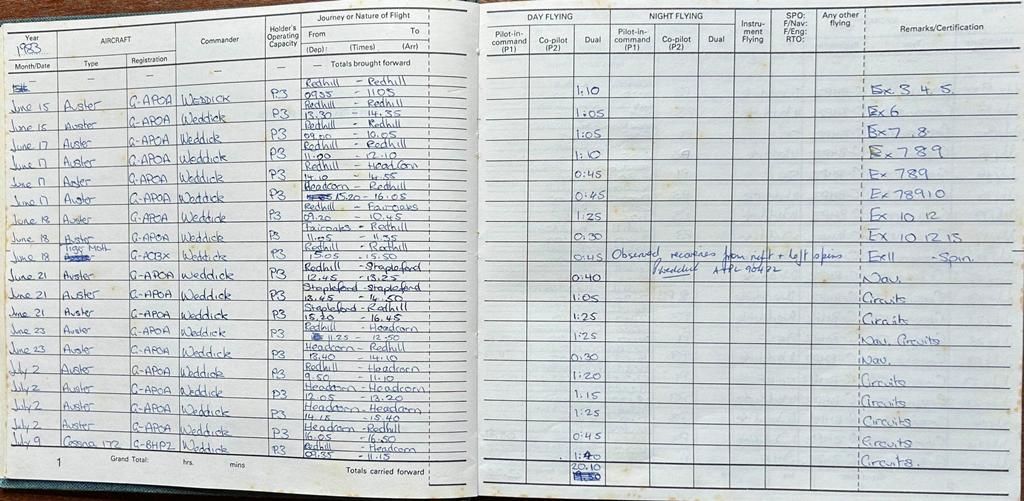 Year 1983
AIRCRAFT
Commander
Holder's Operating Capacity
Journey or Nature of Flight
DAY FLYING
NIGHT FLYING
Instru-ment Flying
SPO: F/Nav: F/Eng: RTO:
Any other flying
Remarks/Certification
Month/Date
Type
Registration
From To
(Dep): (Times) (Arr)
Pilot-in-command (P1)
Co-pilot (P2)
Dual
Pilot-in-command (P1)
Co-pilot (P2)
Dual
— — — — — Totals brought forward
Redhill - Redhill
June 15 Auster G-APOA WEDDICK P3 09.55 - 1105 1:10 Ex 3 4 5.
Redhill - Redhill
June 15 Auster G-APOA Weddick P3 13.30 - 14.35 1:05 Ex 6
Redhill - Redhill
June 17 Auster G-APOA Weddick P3 09.00 - 10.05 1:05 Ex 7 .8
Redhill - Redhill
June 17 Auster G-APOA Weddick P3 11.00 - 12.10 1:10 Ex 7 8 9
Redhill - Headcorn
June 17 Auster G-APOA Weddick P3 14.10 - 14.55 0:45 Ex 789
Headcorn - Redhill
June 17 Auster G-APOA Weddick P3 15.20 - 16.05 0:45 Ex 78910
Redhill - Fairoaks
June 18 Auster G-APOA Weddick P3 09.20 - 10.45 1:25 Ex 10 12
Fairoaks - Redhill
June 18 Auster G-APOA Weddick P3 11.05 - 11.35 0:30 Ex 10 12 15
Redhill - Redhill
June 18 Tiger Moth Weddick P3 15.05 - 15.50 0:45 Observed recoveries from right + left spins - Spin.
Weddick ATPL
Redhill - Stapleford
June 21 Auster G-APOA Weddick P3 12.45 - 13.25 0:40 Nav.
Stapleford - Stapleford
June 21 Auster G-APOA Weddick P3 13.45 - 14.50 1:05 Circuits
Stapleford - Redhill
June 21 Auster G-APOA Weddick P3 15.20 - 16.45 1:25 Circuits
Redhill - Headcorn
June 23 Auster G-APOA Weddick P3 11.25 - 12.50 1:25 Nav, Circuits
Headcorn - Redhill
June 23 Auster G-APOA Weddick P3 13.40 - 14.10 0:30 Nav.
Redhill - Headcorn
July 2 Auster G-APOA Weddick P3 9.50 - 11.10 1:20 Circuits
Headcorn - Headcorn
July 2 Auster G-APOA Weddick P3 12.05 - 13.20 1.15 Circuits
Headcorn - Headcorn
July 2 Auster G-APOA Weddick P3 14.15 - 15.40 1:25 Circuits
Headcorn - Redhill
July 2 Auster G-APOA Weddick P3 16.05 - 16.50 0:45 Circuits
Redhill - Headcorn
July 9 Cessna 172 Weddick P3 09.35 - 11.15 1:40 Circuits.
1 Grand Total: hrs. mins Totals carried forward 20.10